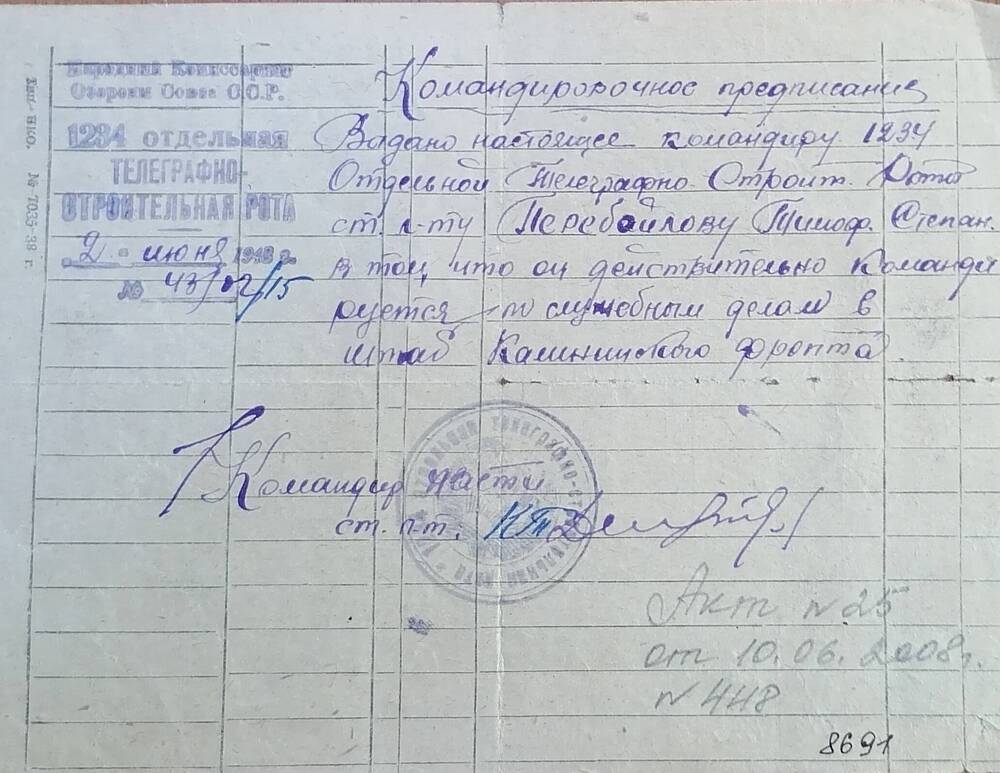 Народный Комиссариат
Обороны Союза С.С.Р.
1234 отдельная
ТЕЛЕГРАФНО-
СТРОИТЕЛЬНАЯ РОТА
2 - июня 1943 г.
№ 43/02/15
Тип. НКО. № 7035-38 г.
Командировочное предписание
Выдано настоящее командиру 1234
Отдельной Телеграфно Строит. Роты
ст. л-ту Перебойлову Тимоф. Степан.
в том, что он действительно команди
руется по служебным делам в
штаб Калининского фронта.
Командир части
ст. л-т.
Акт N 25
от 10.06.2008г.
N 448
8691